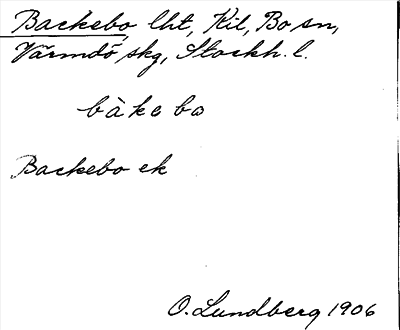 Backebo lht, Kil, Bo sn,
Värmdö skg, Stockh. l.
bàkebo
Backebo ek
O. Lundberg 1906